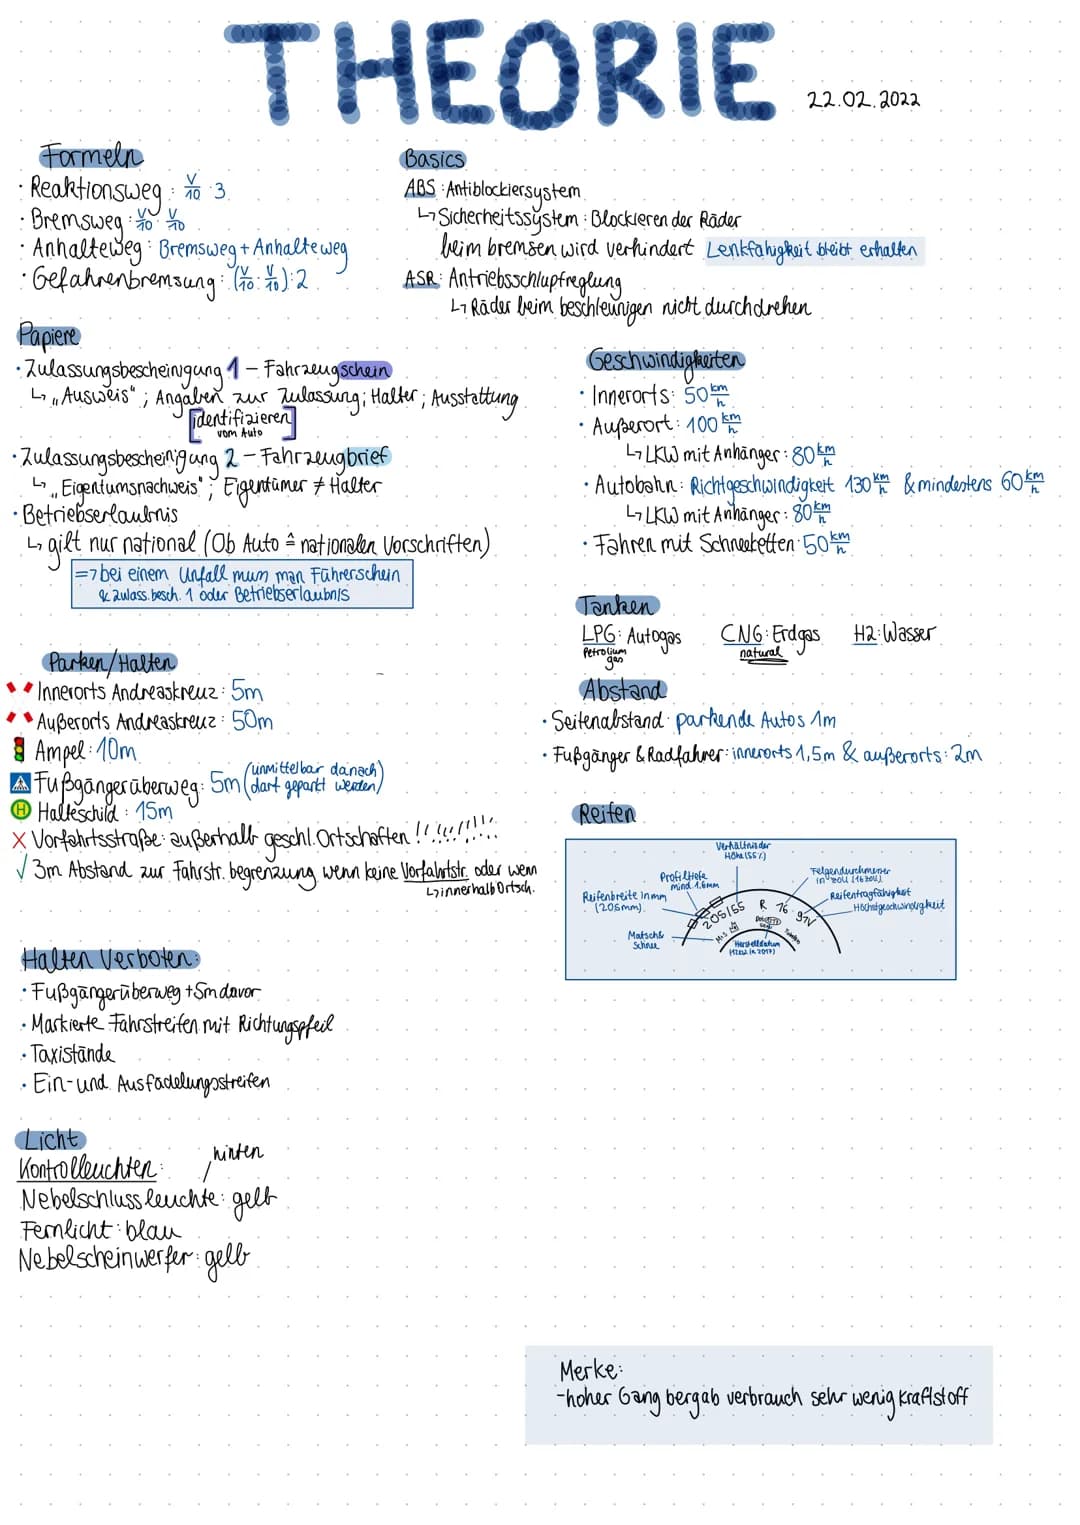 THEORIE
22.02.2022
Formeln
· Reaktionsweg : V/10 · 3
· Bremsweg : V/10 · V/10
· Anhalteweg : Bremsweg + Anhalteweg
· Gefahrenbremsung : (V/10 · V/10) : 2
Basics
ABS : Antiblockiersystem
↳ Sicherheitssystem : Blockieren der Räder
beim bremsen wird verhindert Lenkfähigkeit bleibt erhalten
ASR : Antriebsschlupfreglung
↳ Räder beim beschleunigen nicht durchdrehen
Papiere
· Zulassungsbescheinigung 1 – Fahrzeugschein
↳ „Ausweis" ; Angaben zur Zulassung ; Halter ; Ausstattung
[identifizieren
vom Auto]
· Zulassungsbescheinigung 2 – Fahrzeugbrief
↳ „Eigentumsnachweis" ; Eigentümer ≠ Halter
· Betriebserlaubnis
↳ gilt nur national (Ob Auto ≙ nationalen Vorschriften)
=> bei einem Unfall muss man Führerschein
& zulass. besch. 1 oder Betriebserlaubnis
Geschwindigkeiten
· Innerorts : 50 km/h
· Außerort : 100 km/h
↳ LKW mit Anhänger : 80 km/h
· Autobahn : Richtgeschwindigkeit 130 km/h & mindestens 60 km/h
↳ LKW mit Anhänger : 80 km/h
· Fahren mit Schneeketten 50 km/h
Tanken
LPG : Autogas CNG : Erdgas H2 : Wasser
Petrolium natural
gas
Parken/Halten
Innerorts Andreaskreuz : 5m
Außerorts Andreaskreuz : 50m
Ampel : 10m
Fußgängerüberweg : 5m (unmittelbar danach
darf geparkt werden)
H Halteschild : 15m
X Vorfahrtsstraße : außerhalb geschl. Ortschaften !!!!!!!!!
✓ 3m Abstand zur Fahrstr. begrenzung wenn keine Vorfahrtstr. oder wenn
↳ innerhalb Ortsch.
Abstand
· Seitenabstand · parkende Autos 1m
· Fußgänger & Radfahrer : innerorts 1,5m & außerorts : 2m
Reifen
Verhältnis der
Höhe (55%)
Profiltiefe
mind. 1,6mm
Felgendurchmesser
in zoll (16 zoll)
Reifenbreite in mm
(205mm)
Reifentragfähigkeit
Höchstgeschwindigkeit
205/55 R 16 91V
Matsch &
Schnee
M+S
Herstelldatum
Halten Verboten :
· Fußgängerüberweg + 5m davor
· Markierte Fahrstreifen mit Richtungspfeil
· Taxistände
· Ein- und Ausfädelungsstreifen
Licht
Kontrolleuchten :
hinten
Nebelschlussleuchte : gelb
Fernlicht : blau
Nebelscheinwerfer : gelb
Merke :
- hoher Gang bergab verbrauch sehr wenig kraftstoff